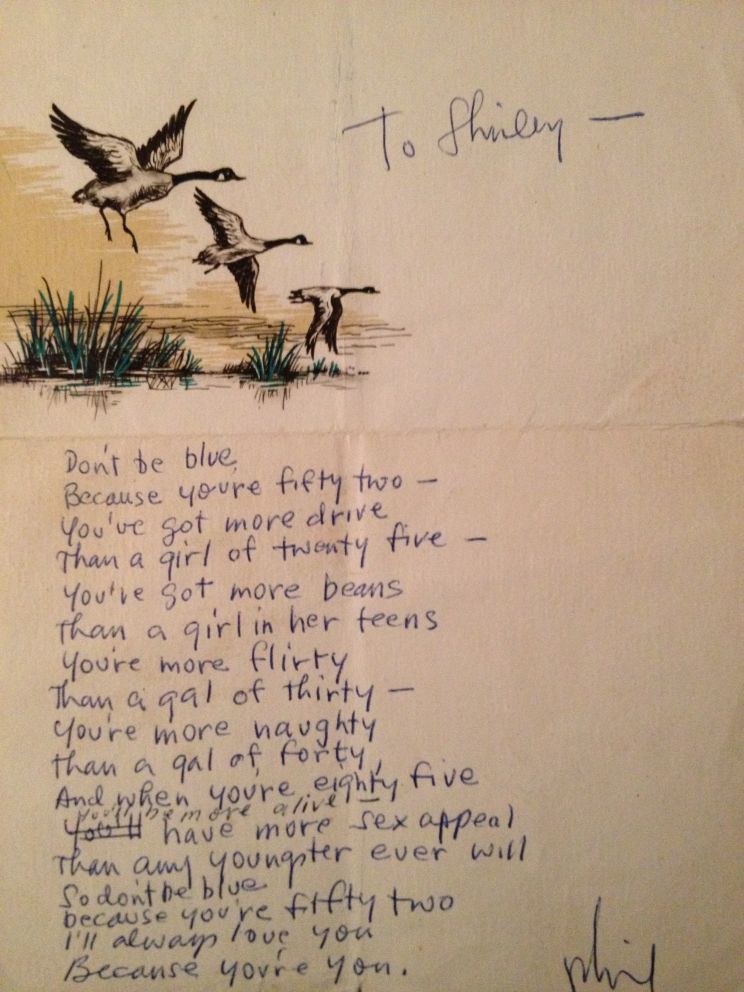 To Shirley —
Don't be blue,
Because you're fifty two —
You've got more drive
Than a girl of twenty five —
You've got more beans
Than a girl in her teens
You're more flirty
Than a gal of thirty —
You're more naughty
than a gal of forty,
And when you're eighty five
you'll be more alive
You'll have more sex appeal
Than any youngster ever will
So don't be blue
because you're fifty two
I'll always love you
Because you're you.
Phil